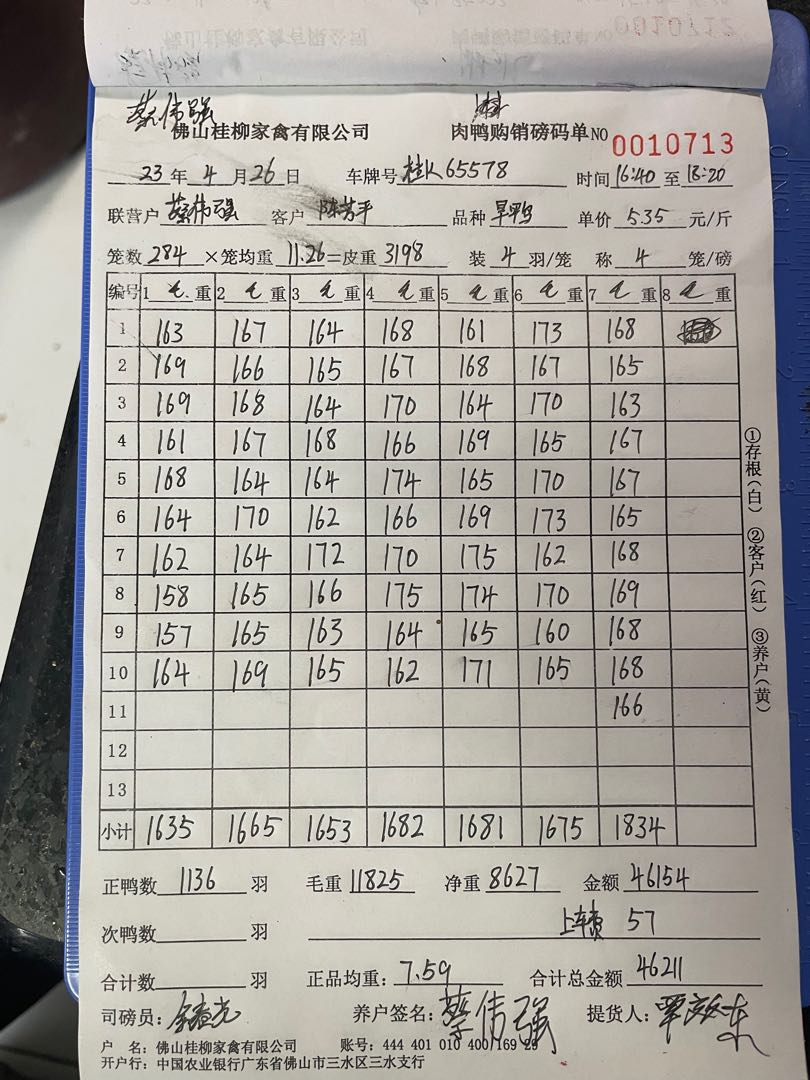 蔡伟强
佛山桂柳家禽有限公司 肉鸭购销磅码单 NO 0010713
23 年 4 月 26 日 车牌号 桂K65578 时间 16:40 至 18:20
联营户 蔡伟强 客户 陈芳平 品种 旱鸭 单价 5.35 元/斤
笼数 284 ×笼均重 11.26 =皮重 3198 装 4 羽/笼 称 4 笼/磅
编号 1 毛 重 2 毛 重 3 毛 重 4 毛 重 5 毛 重 6 毛 重 7 毛 重 8 毛 重
1 163 167 164 168 161 173 168
2 169 166 165 167 168 167 165
3 169 168 164 170 164 170 163
4 161 167 168 166 169 165 167
5 168 164 164 174 165 170 167
6 164 170 162 166 169 173 165
7 162 164 172 170 175 162 168
8 158 165 166 175 174 170 169
9 157 165 163 164 165 160 168
10 164 169 165 162 171 165 168
11 166
12
13
小计 1635 1665 1653 1682 1681 1675 1834
正鸭数 1136 羽 毛重 11825 净重 8627 金额 46154
次鸭数 羽 上车费 57
合计数 羽 正品均重: 7.59 合计总金额 46211
司磅员: 养户签名: 蔡伟强 提货人:
户 名: 佛山桂柳家禽有限公司 账号: 444 401 010 400 169 29
开户行: 中国农业银行广东省佛山市三水区三水支行
①存根(白) ②客户(红) ③养户(黄)